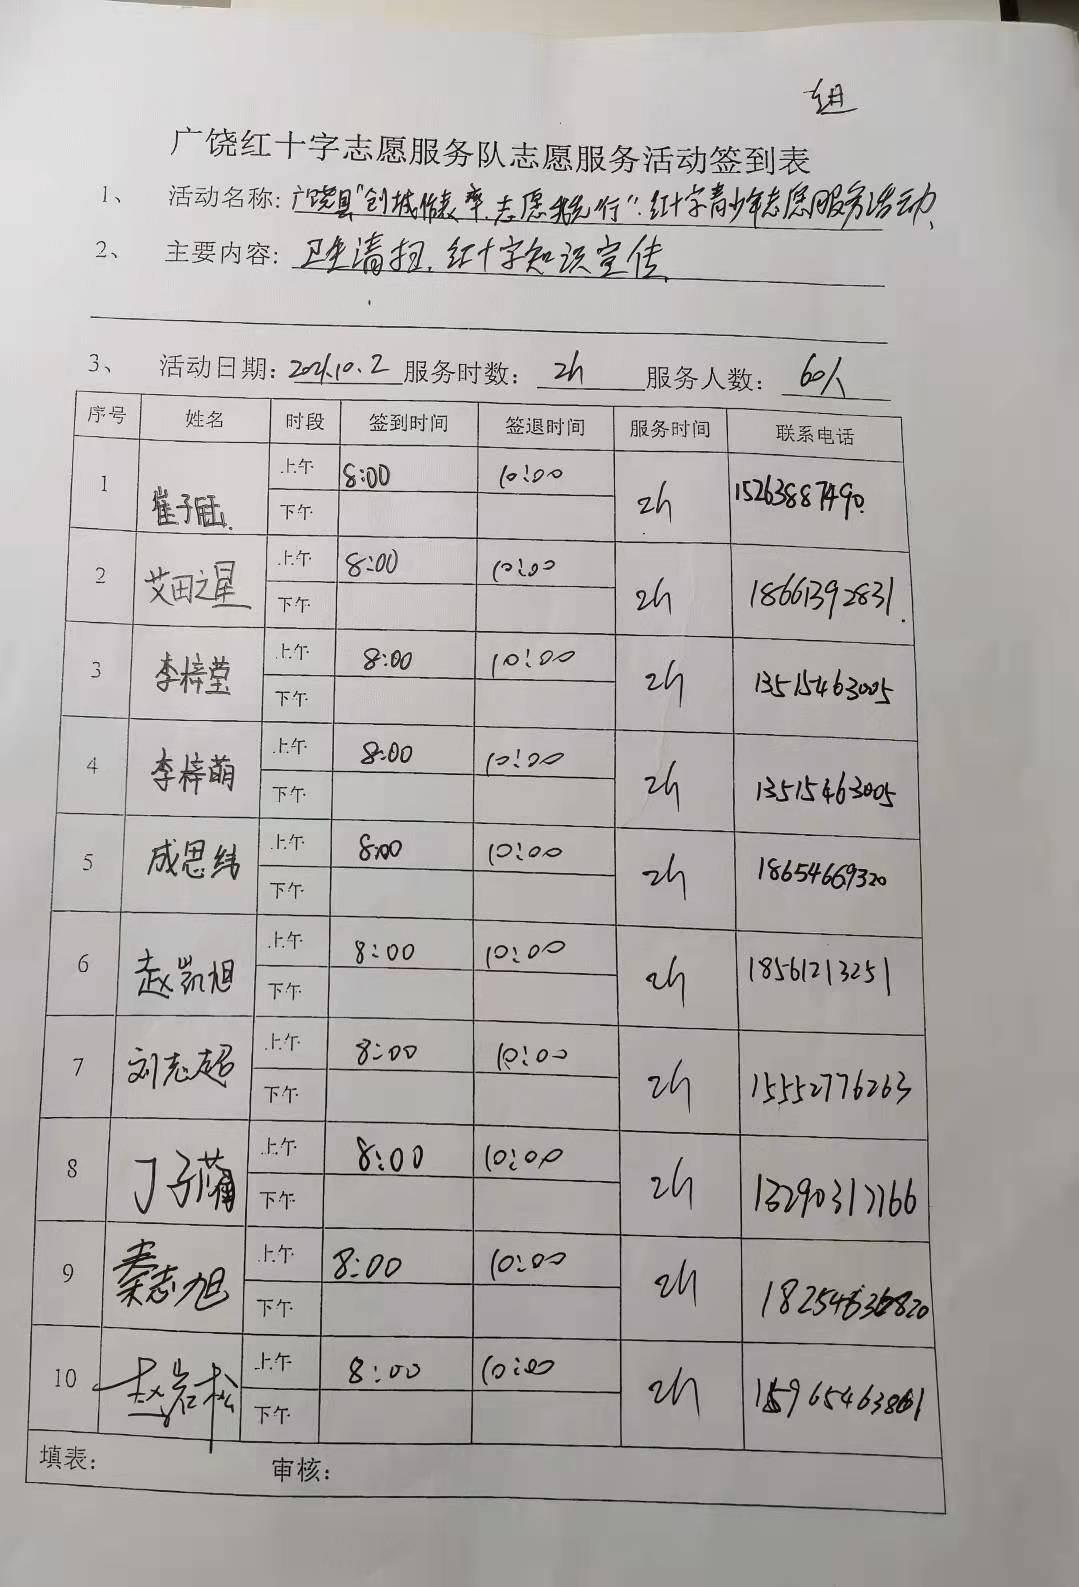 组
广饶红十字志愿服务队志愿服务活动签到表
1、 活动名称: 广饶县"创城作表率,志愿我先行".红十字青少年志愿服务活动、
2、 主要内容: 卫生清扫,红十字知识宣传
3、 活动日期: 2021.10.2 服务时数: 2h 服务人数: 60人
序号 姓名 时段 签到时间 签退时间 服务时间 联系电话
1 崔子 上午 8:00 10:00 2h 15263887490
下午
2 艾田之星 上午 8:00 10:00 2h 18661392831.
下午
3 李梓莹 上午 8:00 10:00 2h 13515463005
下午
4 李梓萌 上午 8:00 10:00 2h 13515463005
下午
5 成思纬 上午 8:00 10:00 2h 18654669320
下午
6 赵凯旭 上午 8:00 10:00 2h 18561213251
下午
7 刘志超 上午 8:00 10:00 2h 15552776263
下午
8 丁子蕑 上午 8:00 10:00 2h 13290317166
下午
9 秦志旭 上午 8:00 10:00 2h
下午
10 赵岩松 上午 8:00 10:00 2h
下午
填表: 审核: